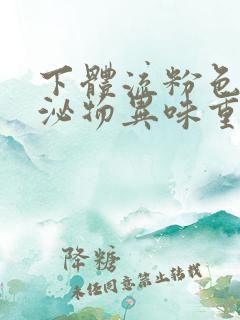 下體流粉色
泌物異味重
降糖
未經同意禁止轉載